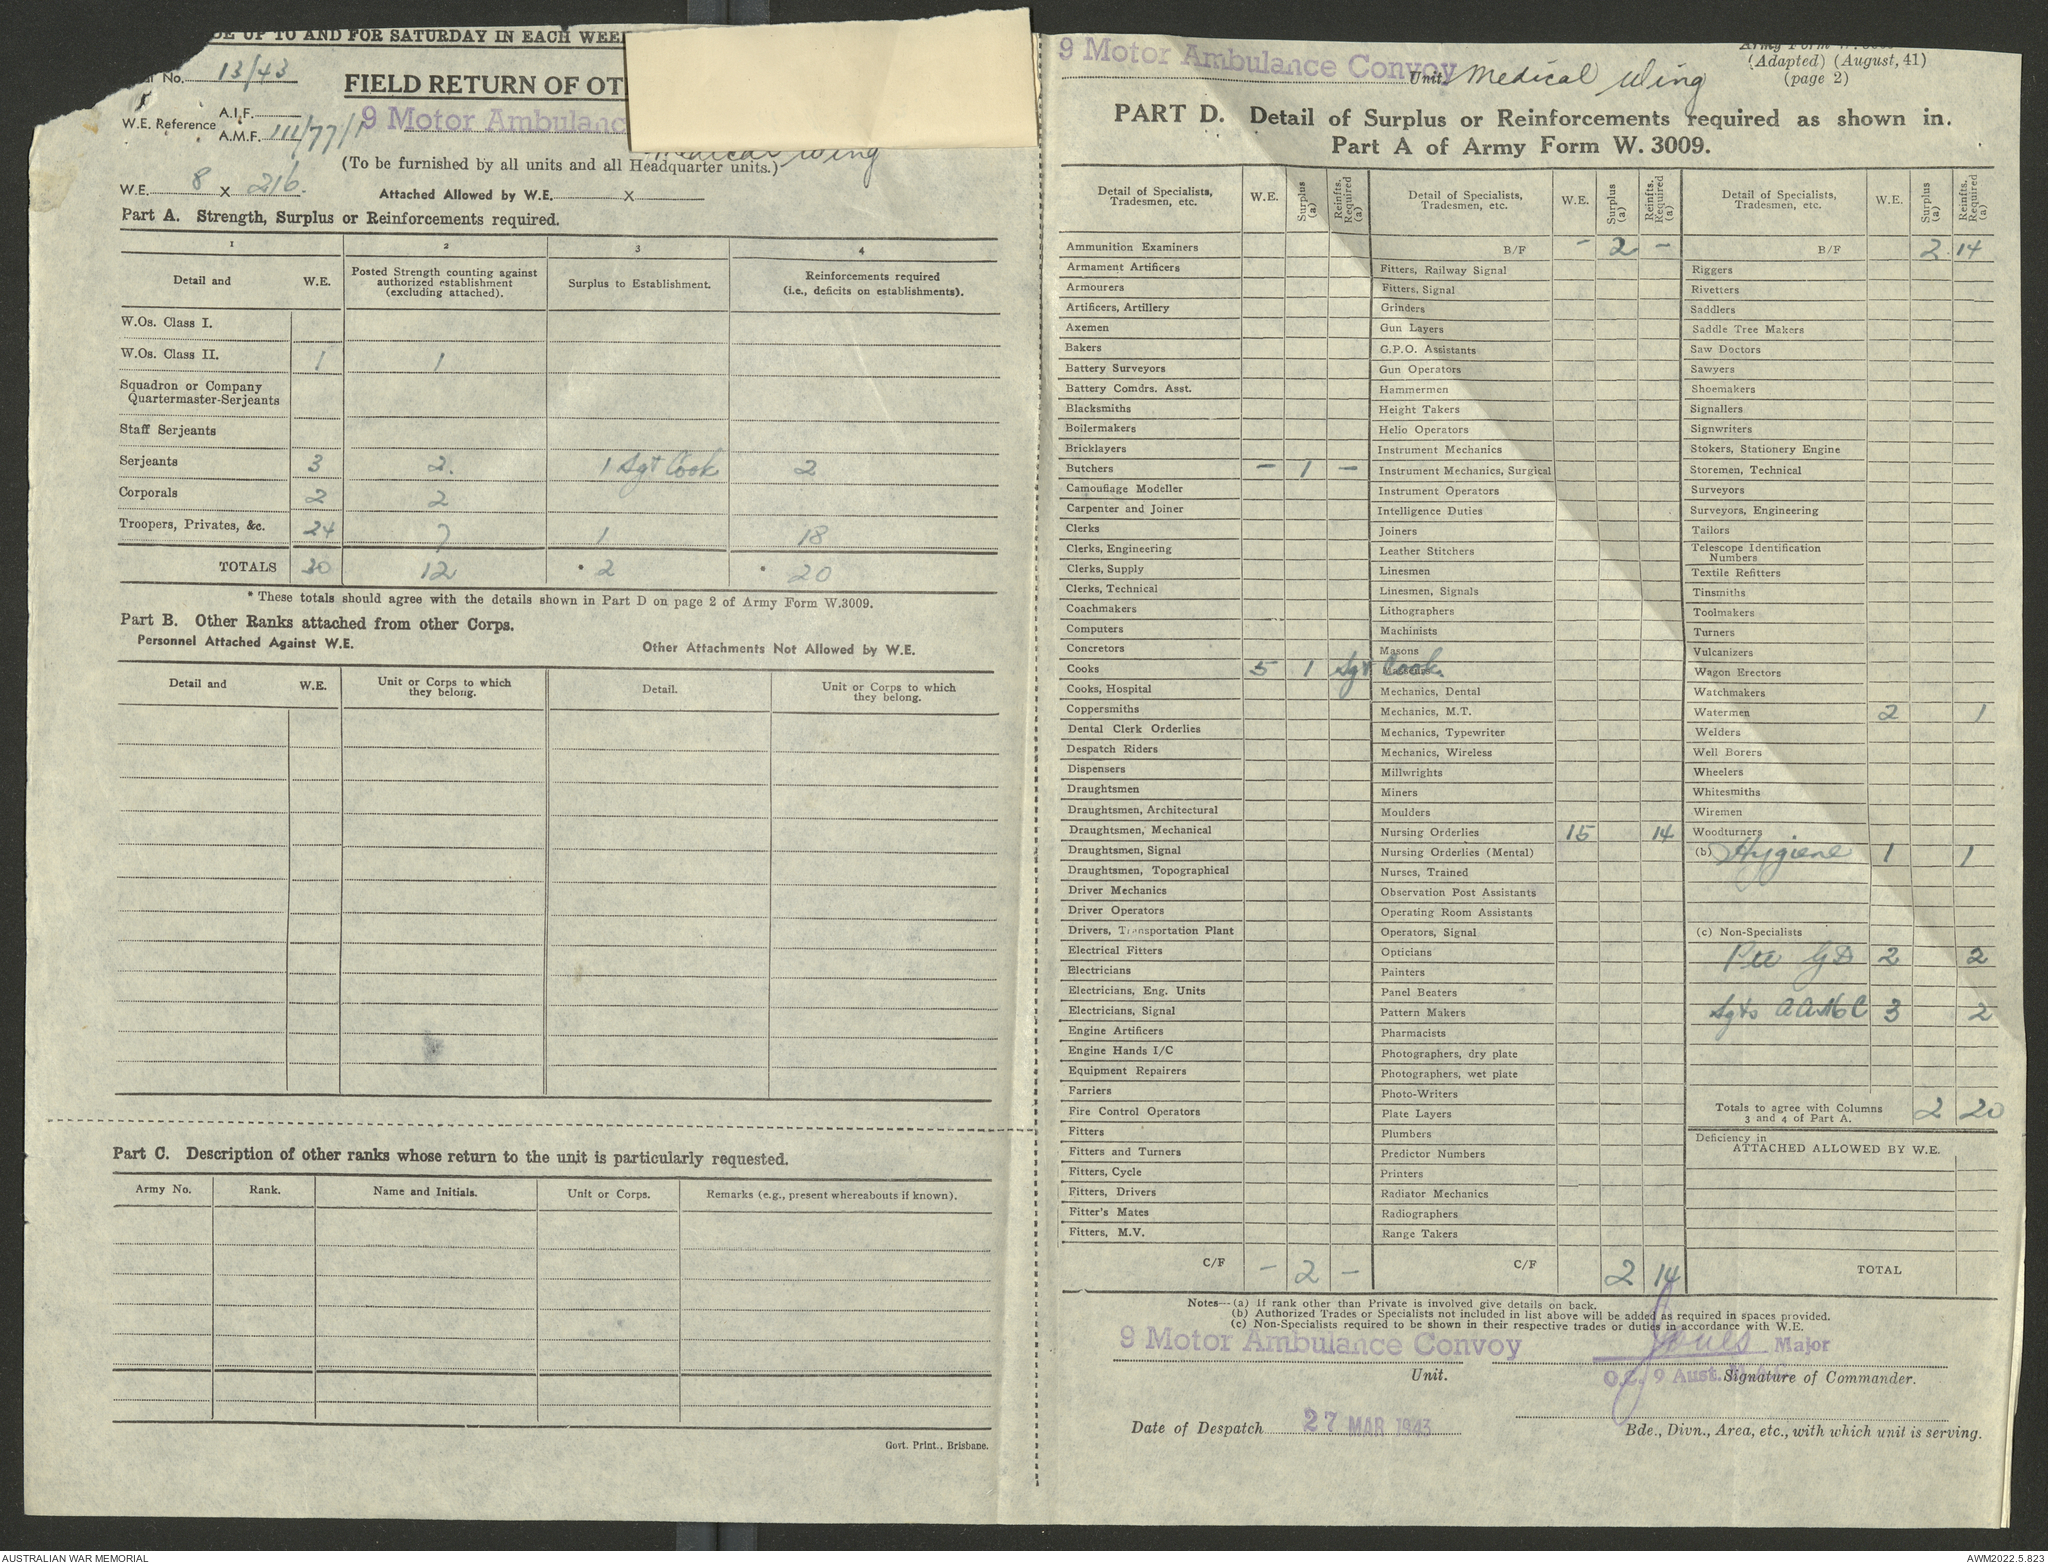 DE UP TO AND FOR SATURDAY IN EACH WEE
No. 13/43
FIELD RETURN OF OT
A.I.F.
W.E. Reference
A.M.F. 111/77/1
9 Motor Ambulanc
Medical Wing
(To be furnished by all units and all Headquarter units.)
W.E. 8 X 216. Attached Allowed by W.E. X
Part A. Strength, Surplus or Reinforcements required.
1 2 3 4
Detail and W.E. Posted Strength counting against authorized establishment (excluding attached). Surplus to Establishment. Reinforcements required (i.e., deficits on establishments).
W.Os. Class I.
W.Os. Class II. 1 1
Squadron or Company
Quartermaster-Serjeants
Staff Serjeants
Serjeants 3 2. 1 Sgt Cook 2
Corporals 2 2
Troopers, Privates, &c. 24 7 1 18
TOTALS 30 12 * 2 * 20
* These totals should agree with the details shown in Part D on page 2 of Army Form W.3009.
Part B. Other Ranks attached from other Corps.
Personnel Attached Against W.E. Other Attachments Not Allowed by W.E.
Detail and W.E. Unit or Corps to which they belong. Detail. Unit or Corps to which they belong.
Part C. Description of other ranks whose return to the unit is particularly requested.
Army No. Rank. Name and Initials. Unit or Corps. Remarks (e.g., present whereabouts if known).
Govt. Print., Brisbane.
(Adapted) (August, 41)
(page 2)
9 Motor Ambulance Convoy Unit. Medical Wing
PART D. Detail of Surplus or Reinforcements required as shown in.
Part A of Army Form W. 3009.
Detail of Specialists, Tradesmen, etc. W.E. Surplus (a) Reinfts. Required (a)
Ammunition Examiners
Armament Artificers
Armourers
Artificers, Artillery
Axemen
Bakers
Battery Surveyors
Battery Comdrs. Asst.
Blacksmiths
Boilermakers
Bricklayers
Butchers - 1 -
Camouflage Modeller
Carpenter and Joiner
Clerks
Clerks, Engineering
Clerks, Supply
Clerks, Technical
Coachmakers
Computers
Concretors
Cooks 5 1 Sgt Cook.
Cooks, Hospital
Coppersmiths
Dental Clerk Orderlies
Despatch Riders
Dispensers
Draughtsmen
Draughtsmen, Architectural
Draughtsmen, Mechanical
Draughtsmen, Signal
Draughtsmen, Topographical
Driver Mechanics
Driver Operators
Drivers, Transportation Plant
Electrical Fitters
Electricians
Electricians, Eng. Units
Electricians, Signal
Engine Artificers
Engine Hands I/C
Equipment Repairers
Farriers
Fire Control Operators
Fitters
Fitters and Turners
Fitters, Cycle
Fitters, Drivers
Fitter's Mates
Fitters, M.V.
C/F - 2 -
Detail of Specialists, Tradesmen, etc. W.E. Surplus (a) Reinfts. Required (a)
B/F - 2 -
Fitters, Railway Signal
Fitters, Signal
Grinders
Gun Layers
G.P.O. Assistants
Gun Operators
Hammermen
Height Takers
Helio Operators
Instrument Mechanics
Instrument Mechanics, Surgical
Instrument Operators
Intelligence Duties
Joiners
Leather Stitchers
Linesmen
Linesmen, Signals
Lithographers
Machinists
Masons
Mechanics, Dental
Mechanics, M.T.
Mechanics, Typewriter
Mechanics, Wireless
Millwrights
Miners
Moulders
Nursing Orderlies 15 14
Nursing Orderlies (Mental)
Nurses, Trained
Observation Post Assistants
Operating Room Assistants
Operators, Signal
Opticians
Painters
Panel Beaters
Pattern Makers
Pharmacists
Photographers, dry plate
Photographers, wet plate
Photo-Writers
Plate Layers
Plumbers
Predictor Numbers
Printers
Radiator Mechanics
Radiographers
Range Takers
C/F 2 14
Detail of Specialists, Tradesmen, etc. W.E. Surplus (a) Reinfts. Required (a)
B/F 2. 14
Riggers
Rivetters
Saddlers
Saddle Tree Makers
Saw Doctors
Sawyers
Shoemakers
Signallers
Signwriters
Stokers, Stationery Engine
Storemen, Technical
Surveyors
Surveyors, Engineering
Tailors
Telescope Identification
Numbers
Textile Refitters
Tinsmiths
Toolmakers
Turners
Vulcanizers
Wagon Erectors
Watchmakers
Watermen 2 1
Welders
Well Borers
Wheelers
Whitesmiths
Wiremen
Woodturners
(b) Hygiene 1 1
(c) Non-Specialists
Pte GD 2 2
Sgts AAMC 3 2
Totals to agree with Columns
3 and 4 of Part A. 2 20
Deficiency in
ATTACHED ALLOWED BY W.E.
TOTAL
Notes—(a) If rank other than Private is involved give details on back.
(b) Authorized Trades or Specialists not included in list above will be added as required in spaces provided.
(c) Non-Specialists required to be shown in their respective trades or duties in accordance with W.E.
9 Motor Ambulance Convoy Major
Unit. O.C. 9 Aust. Signature of Commander.
Date of Despatch 27 MAR 1943
Bde., Divn., Area, etc., with which unit is serving.
AUSTRALIAN WAR MEMORIAL AWM2022.5.823